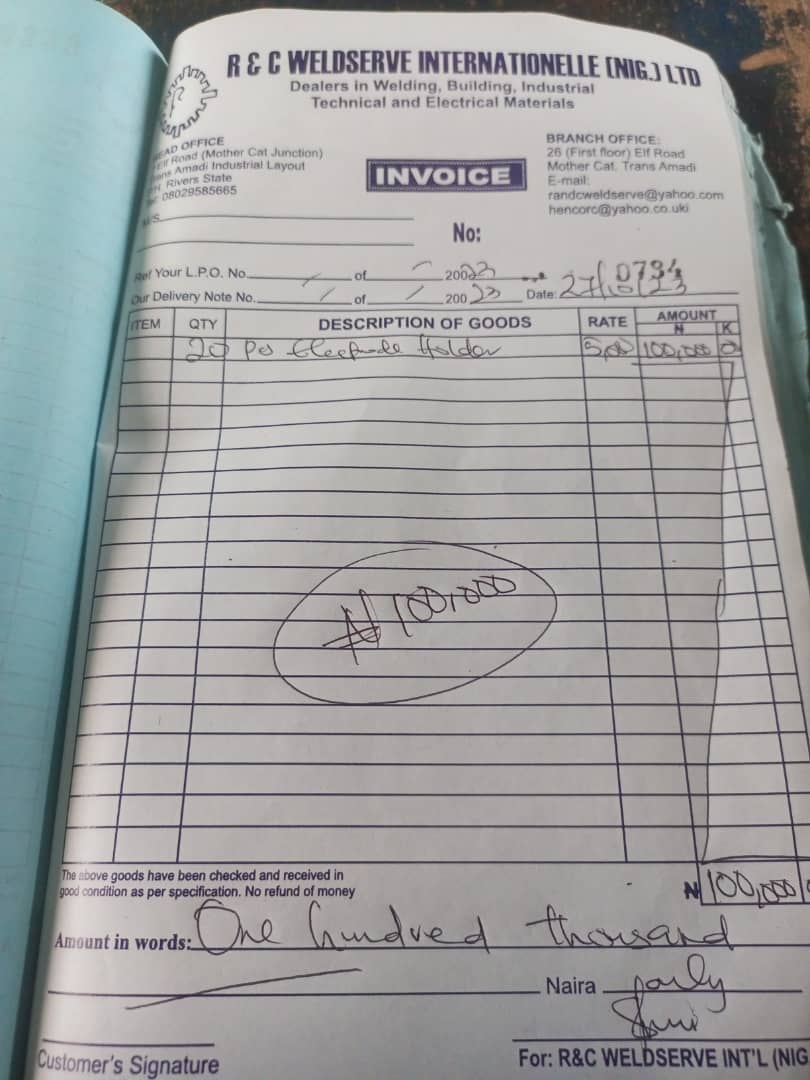 R & C WELDSERVE INTERNATIONELLE (NIG.) LTD
Dealers in Welding, Building, Industrial
Technical and Electrical Materials
EAD OFFICE
Elf Road (Mother Cat Junction)
ans Amadi Industrial Layout
PH Rivers State
08029585665
BRANCH OFFICE:
26 (First floor) Elf Road
Mother Cat. Trans Amadi
E-mail:
randcweldserve@yahoo.com
hencorc@yahoo.co.uki
INVOICE
M/S
No: 0794
Ref Your L.P.O. No. / of / 20023
Our Delivery Note No. / of / 200 23 Date: 27/10/23
ITEM QTY DESCRIPTION OF GOODS RATE AMOUNT
₦ K
20 Pcs Electrode Holder 100,000
₦100,000
The above goods have been checked and received in
good condition as per specification. No refund of money
₦ 100,000
Amount in words: One hundred thousand
Naira only
Customer's Signature
For: R&C WELDSERVE INT'L (NIG